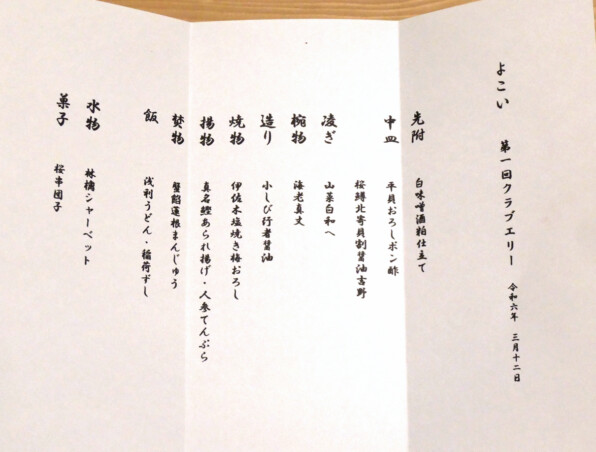 よこい 第一回クラブエリー 令和六年 三月十二日
先附 白味噌酒粕仕立て
中皿 平貝おろしポン酢
桜鱒北寄貝割醤油吉野
凌ぎ 山菜白和へ
椀物 海老真丈
造り 小しび行者醤油
焼物 伊佐木塩焼き梅おろし
揚物 真名鰹あられ揚げ・人参てんぷら
焚物 蟹餡蓮根まんじゅう
飯 浅利うどん・稲荷ずし
水物 林檎シャーベット
菓子 桜串団子